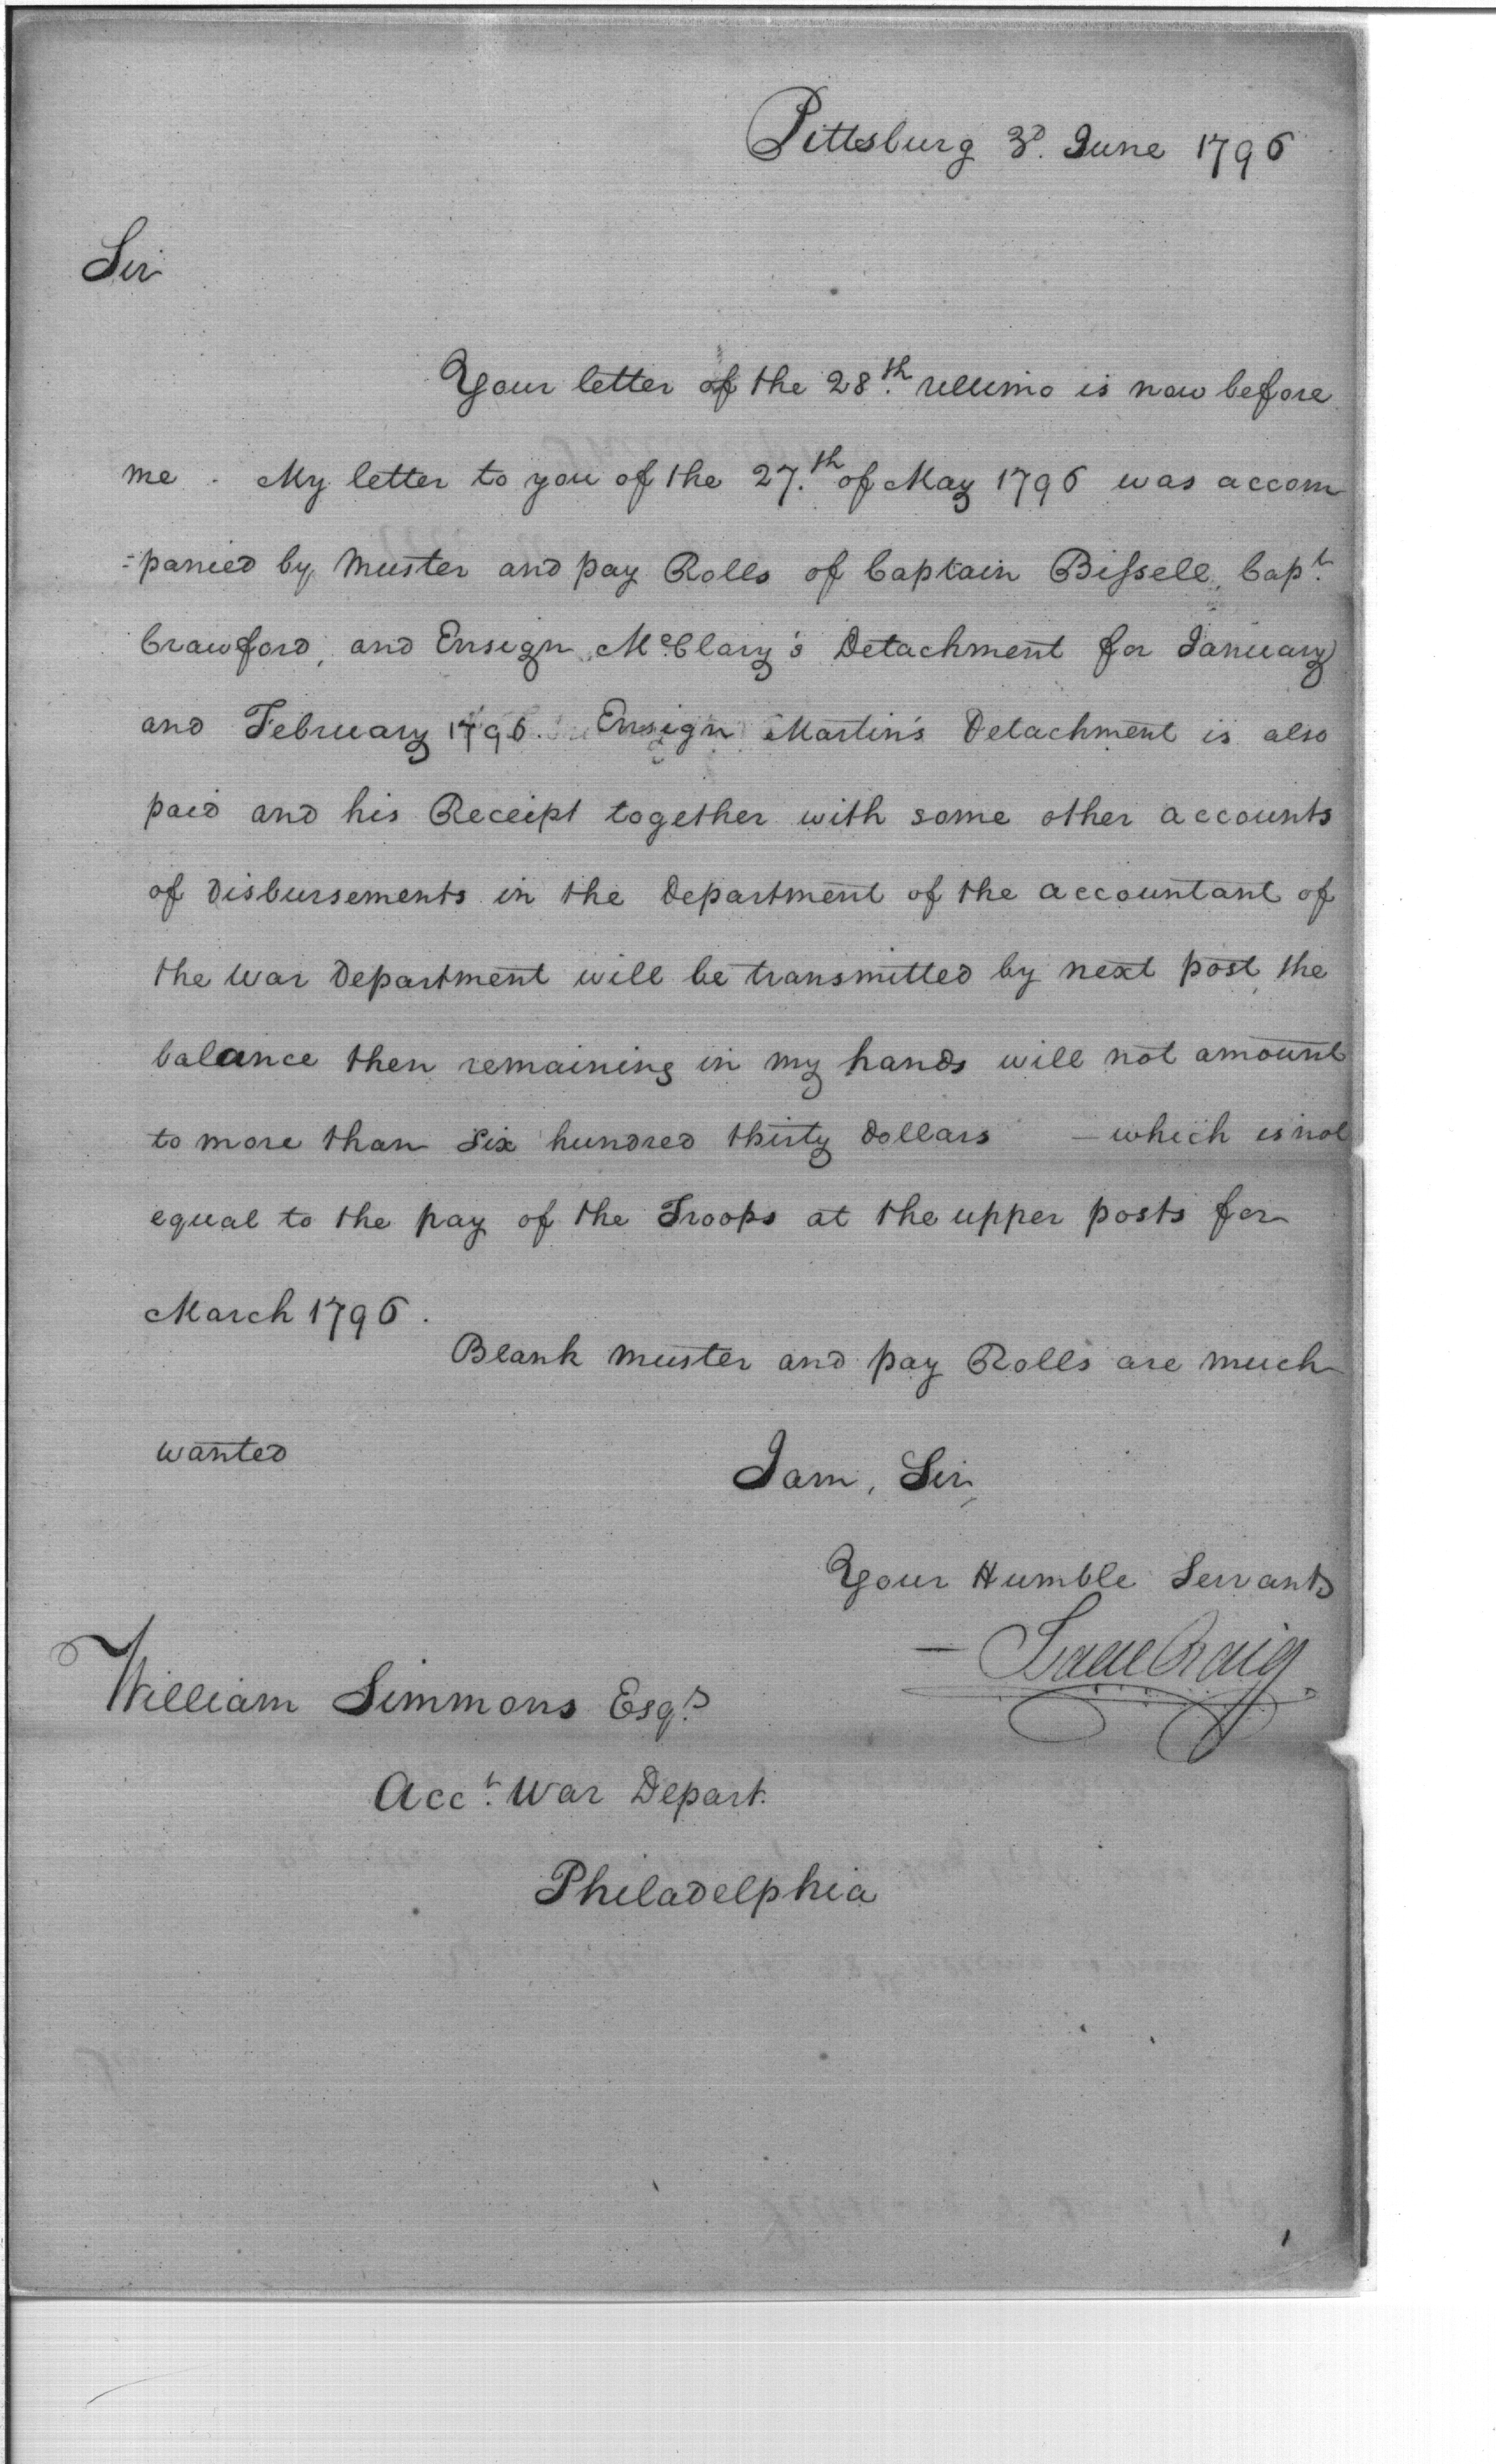 Pittsburg 3d. June 1796
Sir
Your letter of the 28th. ultimo is now before
me. My letter to you of the 27.th of May 1796 was accom
=panied by Muster and pay Rolls of Captain Bissell, Capt.
Crawford, and Ensign McClary's Detachment for January
and February 1796. Ensign Martin's Detachment is also
paid and his Receipt together with some other accounts
of Disbursements in the Department of the accountant of
the War Department will be transmitted by next post, the
balance then remaining in my hands will not amount
to more than Six hundred thirty Dollars — which is not
equal to the pay of the Troops at the upper posts for
March 1796.
Blank muster and pay Rolls are much
wanted
I am, Sir,
Your Humble Servant
Isaac Craig
William Simmons Esqr.
Acct. War Depart.
Philadelphia